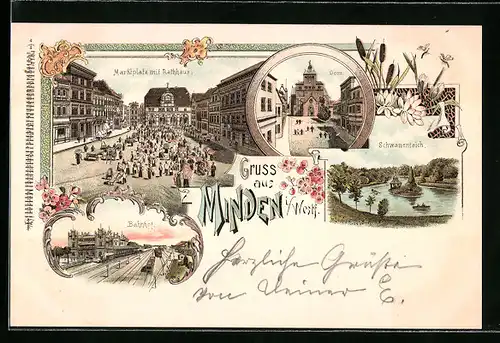 Marktplatz mit Rathhaus.
Dom.
Schwanenteich.
Bahnhof.
Gruss
aus
MINDEN i/Westf.
Herzliche Grüße
von Deiner E.